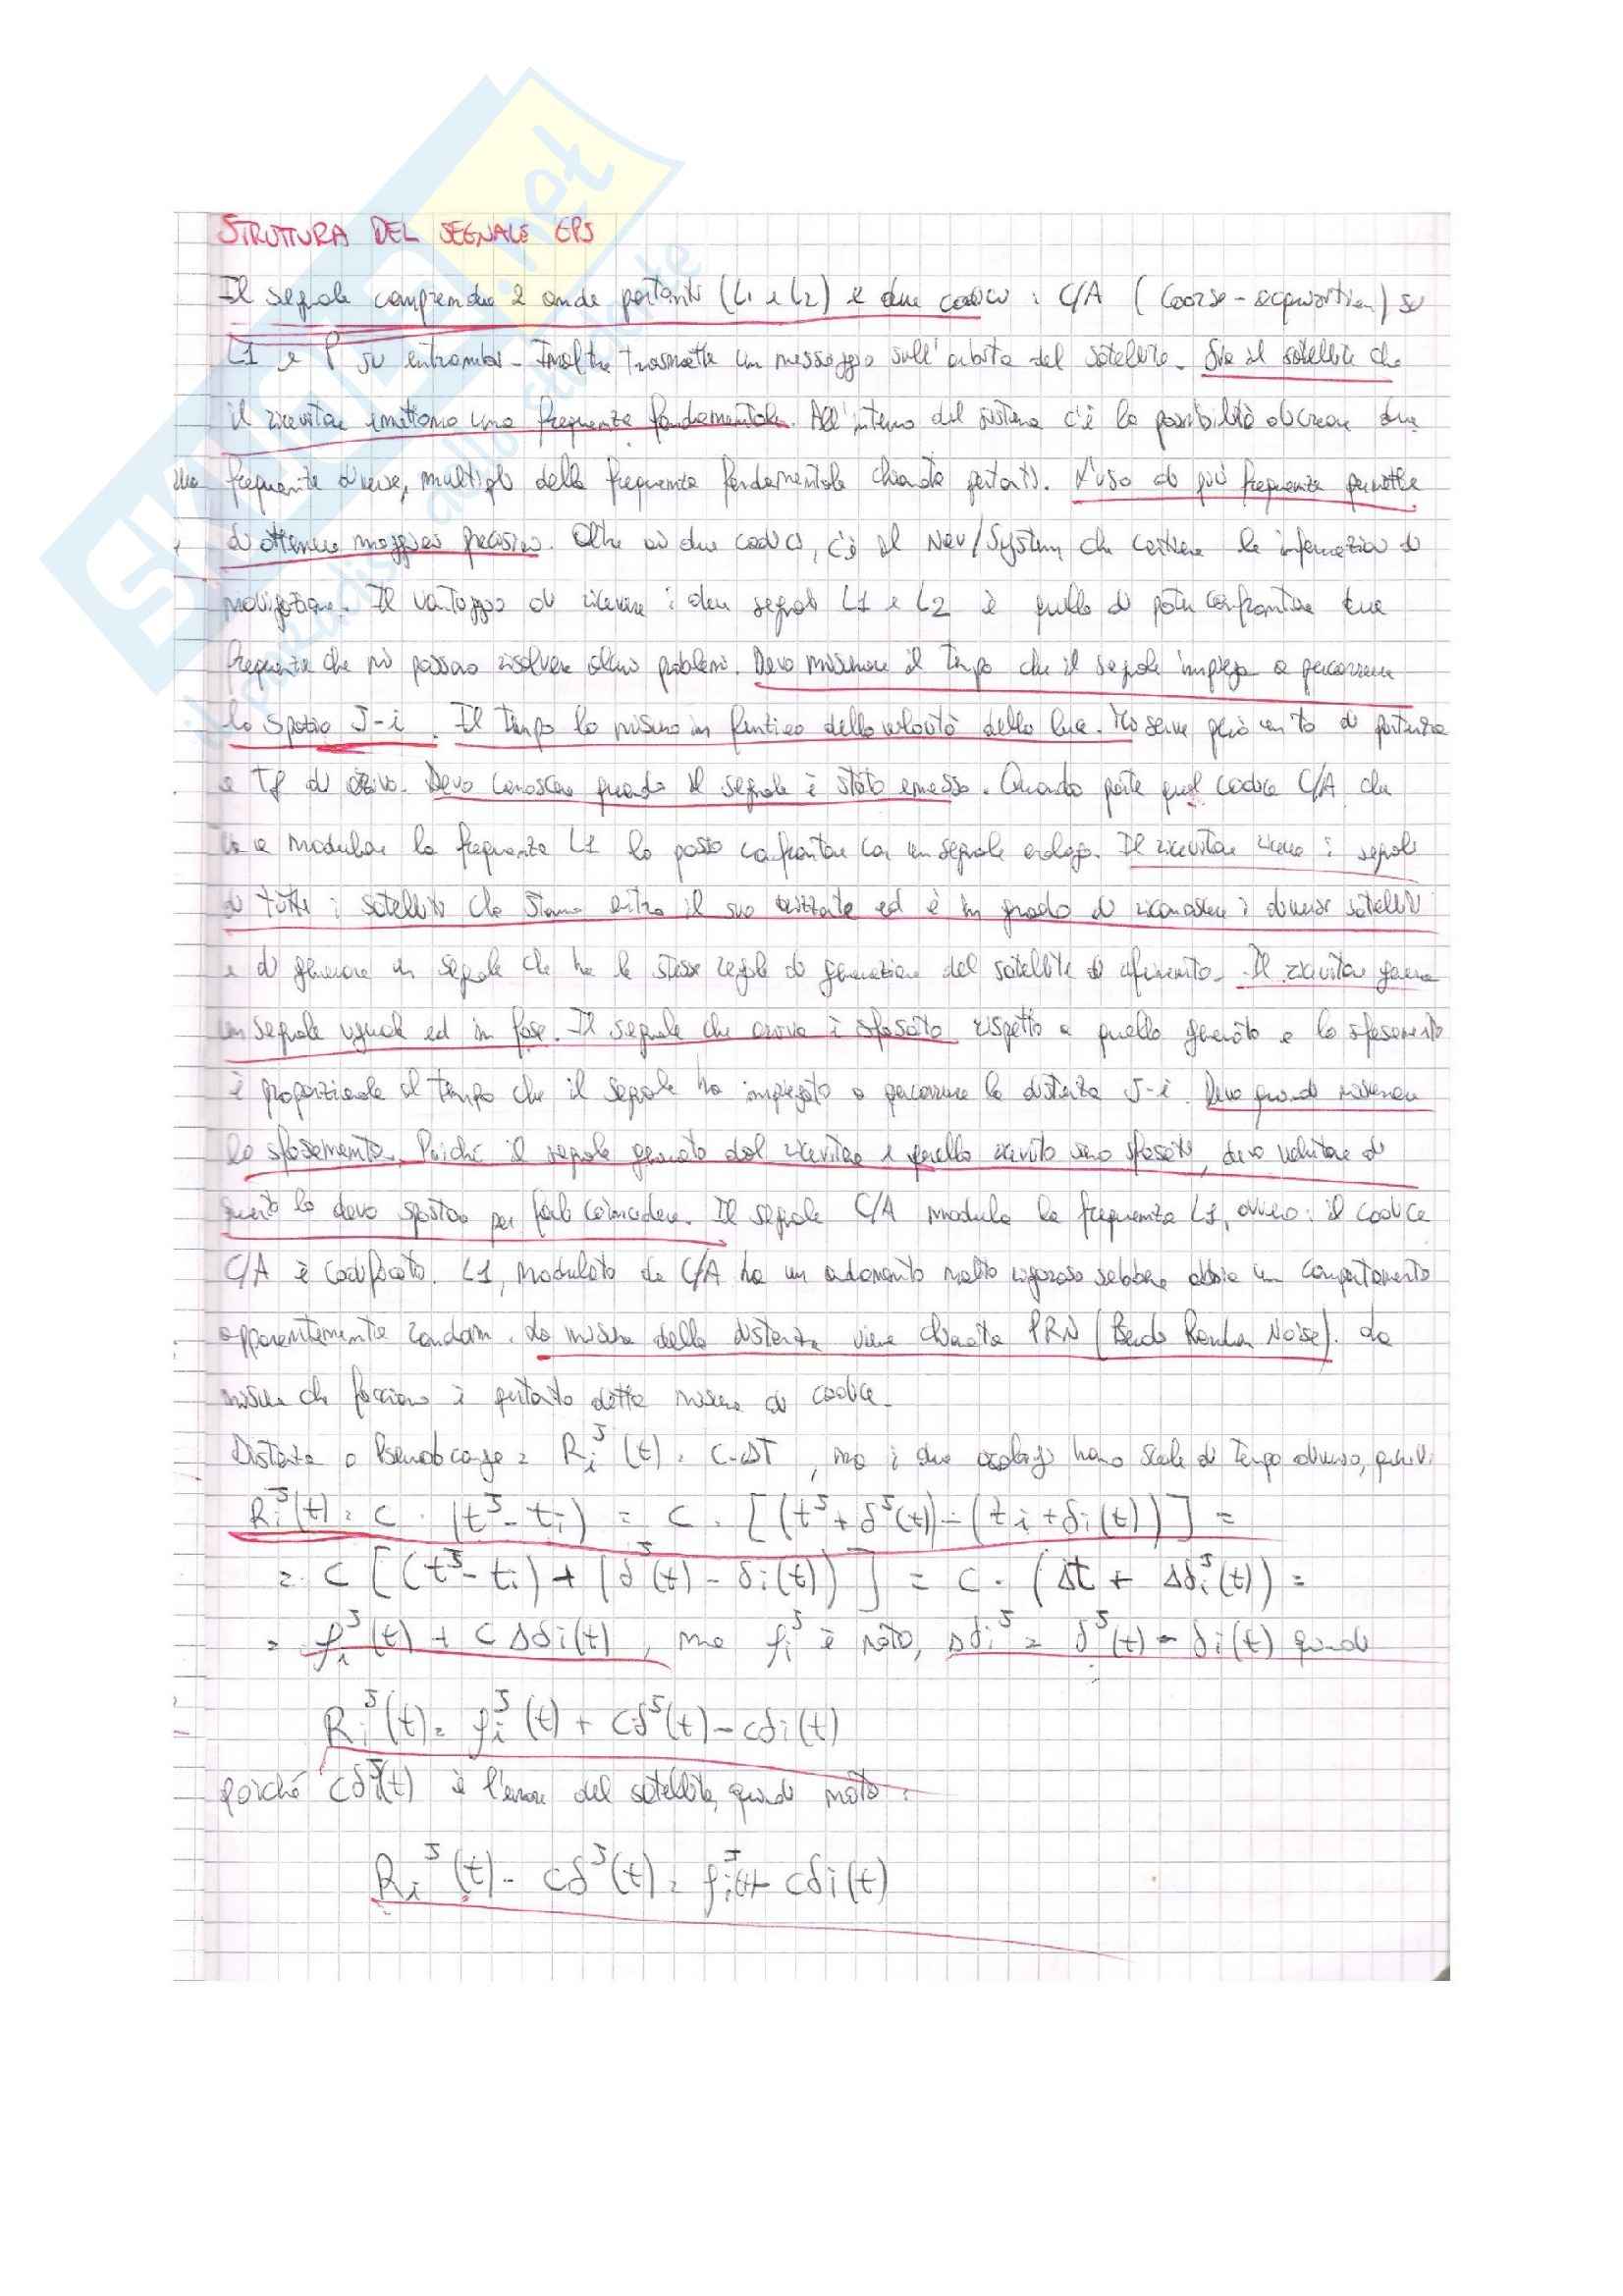 STRUTTURA DEL SEGNALE GPS
Il segnale comprende 2 onde portanti (L1 e L2) e due codici : C/A (Coarse-acquisition) su
L1 e P su entrambi - Inoltre trasmette un messaggio sull'orbita del satellite. Sia il satellite che
il ricevitore emettono una frequenza fondamentale. All'interno del sistema c'è la possibilità di creare due
frequenze diverse, multiple della frequenza fondamentale chiamate portanti. L'uso di più frequenze permette
di ottenere maggior precisione. Oltre ai due codici, c'è il Nav/System, che contiene le informazioni di
navigazione. Il vantaggio di ricevere i due segnali L1 e L2 è quello di poter confrontare due
frequenze che mi possano risolvere alcuni problemi. Devo misurare il tempo che il segnale impiega a percorrere
lo spazio J-i. Il tempo lo misuro in funzione della velocità della luce. Mi serve però un to di partenza
e Tf di arrivo. Devo conoscere quando il segnale è stato emesso. Quando parte quel codice C/A che
va a modulare la frequenza L1 lo posso confrontare con un segnale analogo. Il ricevitore riceve i segnali
di tutti i satelliti che stanno entro il suo orizzonte ed è in grado di riconoscere i diversi satelliti
e di generare un segnale che ha le stesse regole di generazione del satellite di riferimento. Il ricevitore genera
un segnale uguale ed in fase. Il segnale che arriva è sfasato rispetto a quello generato e lo sfasamento
è proporzionale al tempo che il segnale ha impiegato a percorrere la distanza J-i. Devo quindi misurare
lo sfasamento. Poiché il segnale generato dal ricevitore e quello ricevuto sono sfasati, devo valutare di
quanto lo devo spostare per farli coincidere. Il segnale C/A modula la frequenza L1, ovvero: il codice
C/A è codificato. L1, modulato da C/A ha un andamento molto rigoroso sebbene abbia un comportamento
apparentemente random. La misura della distanza viene chiamata PRN (Pseudo Random Noise). La
misura che facciamo è pertanto detta misura di codice.
Distanza o Pseudorange = R_i^J (t) = C·ΔT , ma i due orologi hanno scale di tempo diverse, quindi
R_i^J(t) = C · (t^J - t_i) = C · [(t^J + δ^J(t)) - (t_i + δ_i(t))] =
= C [(t^J - t_i) + (δ^J(t) - δ_i(t))] = C · (Δt + Δδ_i^J(t)) =
= ρ_i^J(t) + C Δδi(t) , ma ρ_i^J è noto, Δδ_i^J = δ^J(t) - δi(t) quindi
R_i^J(t) = ρ_i^J (t) + Cδ^J(t) - cδi(t)
poiché Cδ^J(t) è l'errore del satellite, quindi noto :
R_i^J (t) - Cδ^J(t) = ρ_i^J(t) - Cδi(t)
SKUOLA.net
il paradiso dello studente